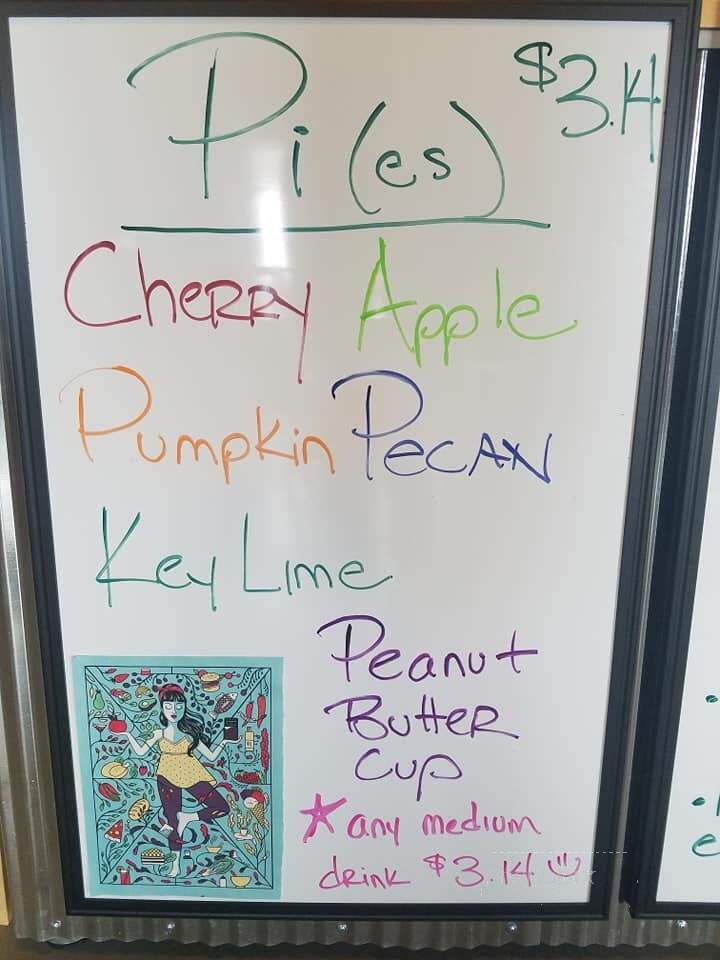 Pi(es) $3.14
Cherry Apple
Pumpkin Pecan
Key Lime
Peanut
Butter
Cup
* any medium
drink $3.14